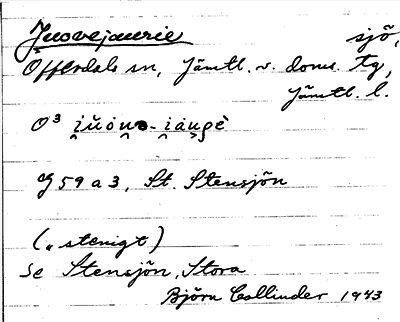 Juovejaurie sjö,
Offerdals sn, Jämtl. v. doms. tg,
Jämtl. l.
O³
G 59 a 3, St. Stensjön
(„stenigt)
Se Stensjön, Stora
Björn Collinder 1943